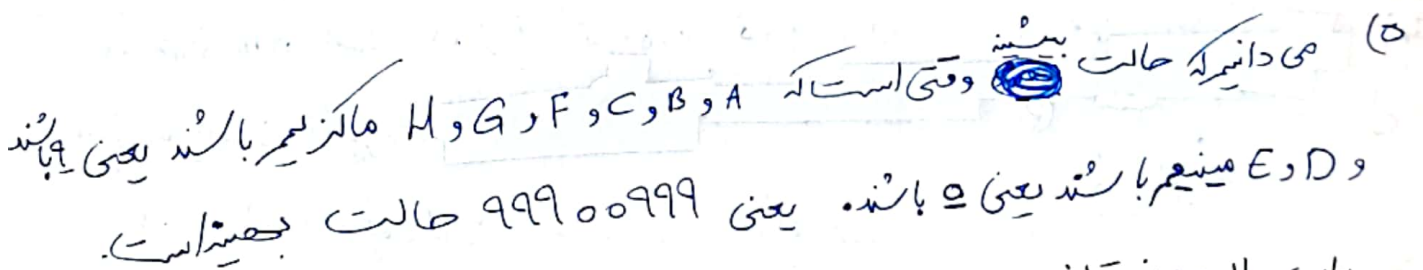 ۵) می دانیم که حالت بیشینه وقتی است که A و B و C و F و G و H ماکزیمم باشند یعنی ۹ باشند
و D و E مینیمم باشند یعنی ۵ باشند. یعنی ۹۹۹۵۵۹۹۹ حالت بهینه است.